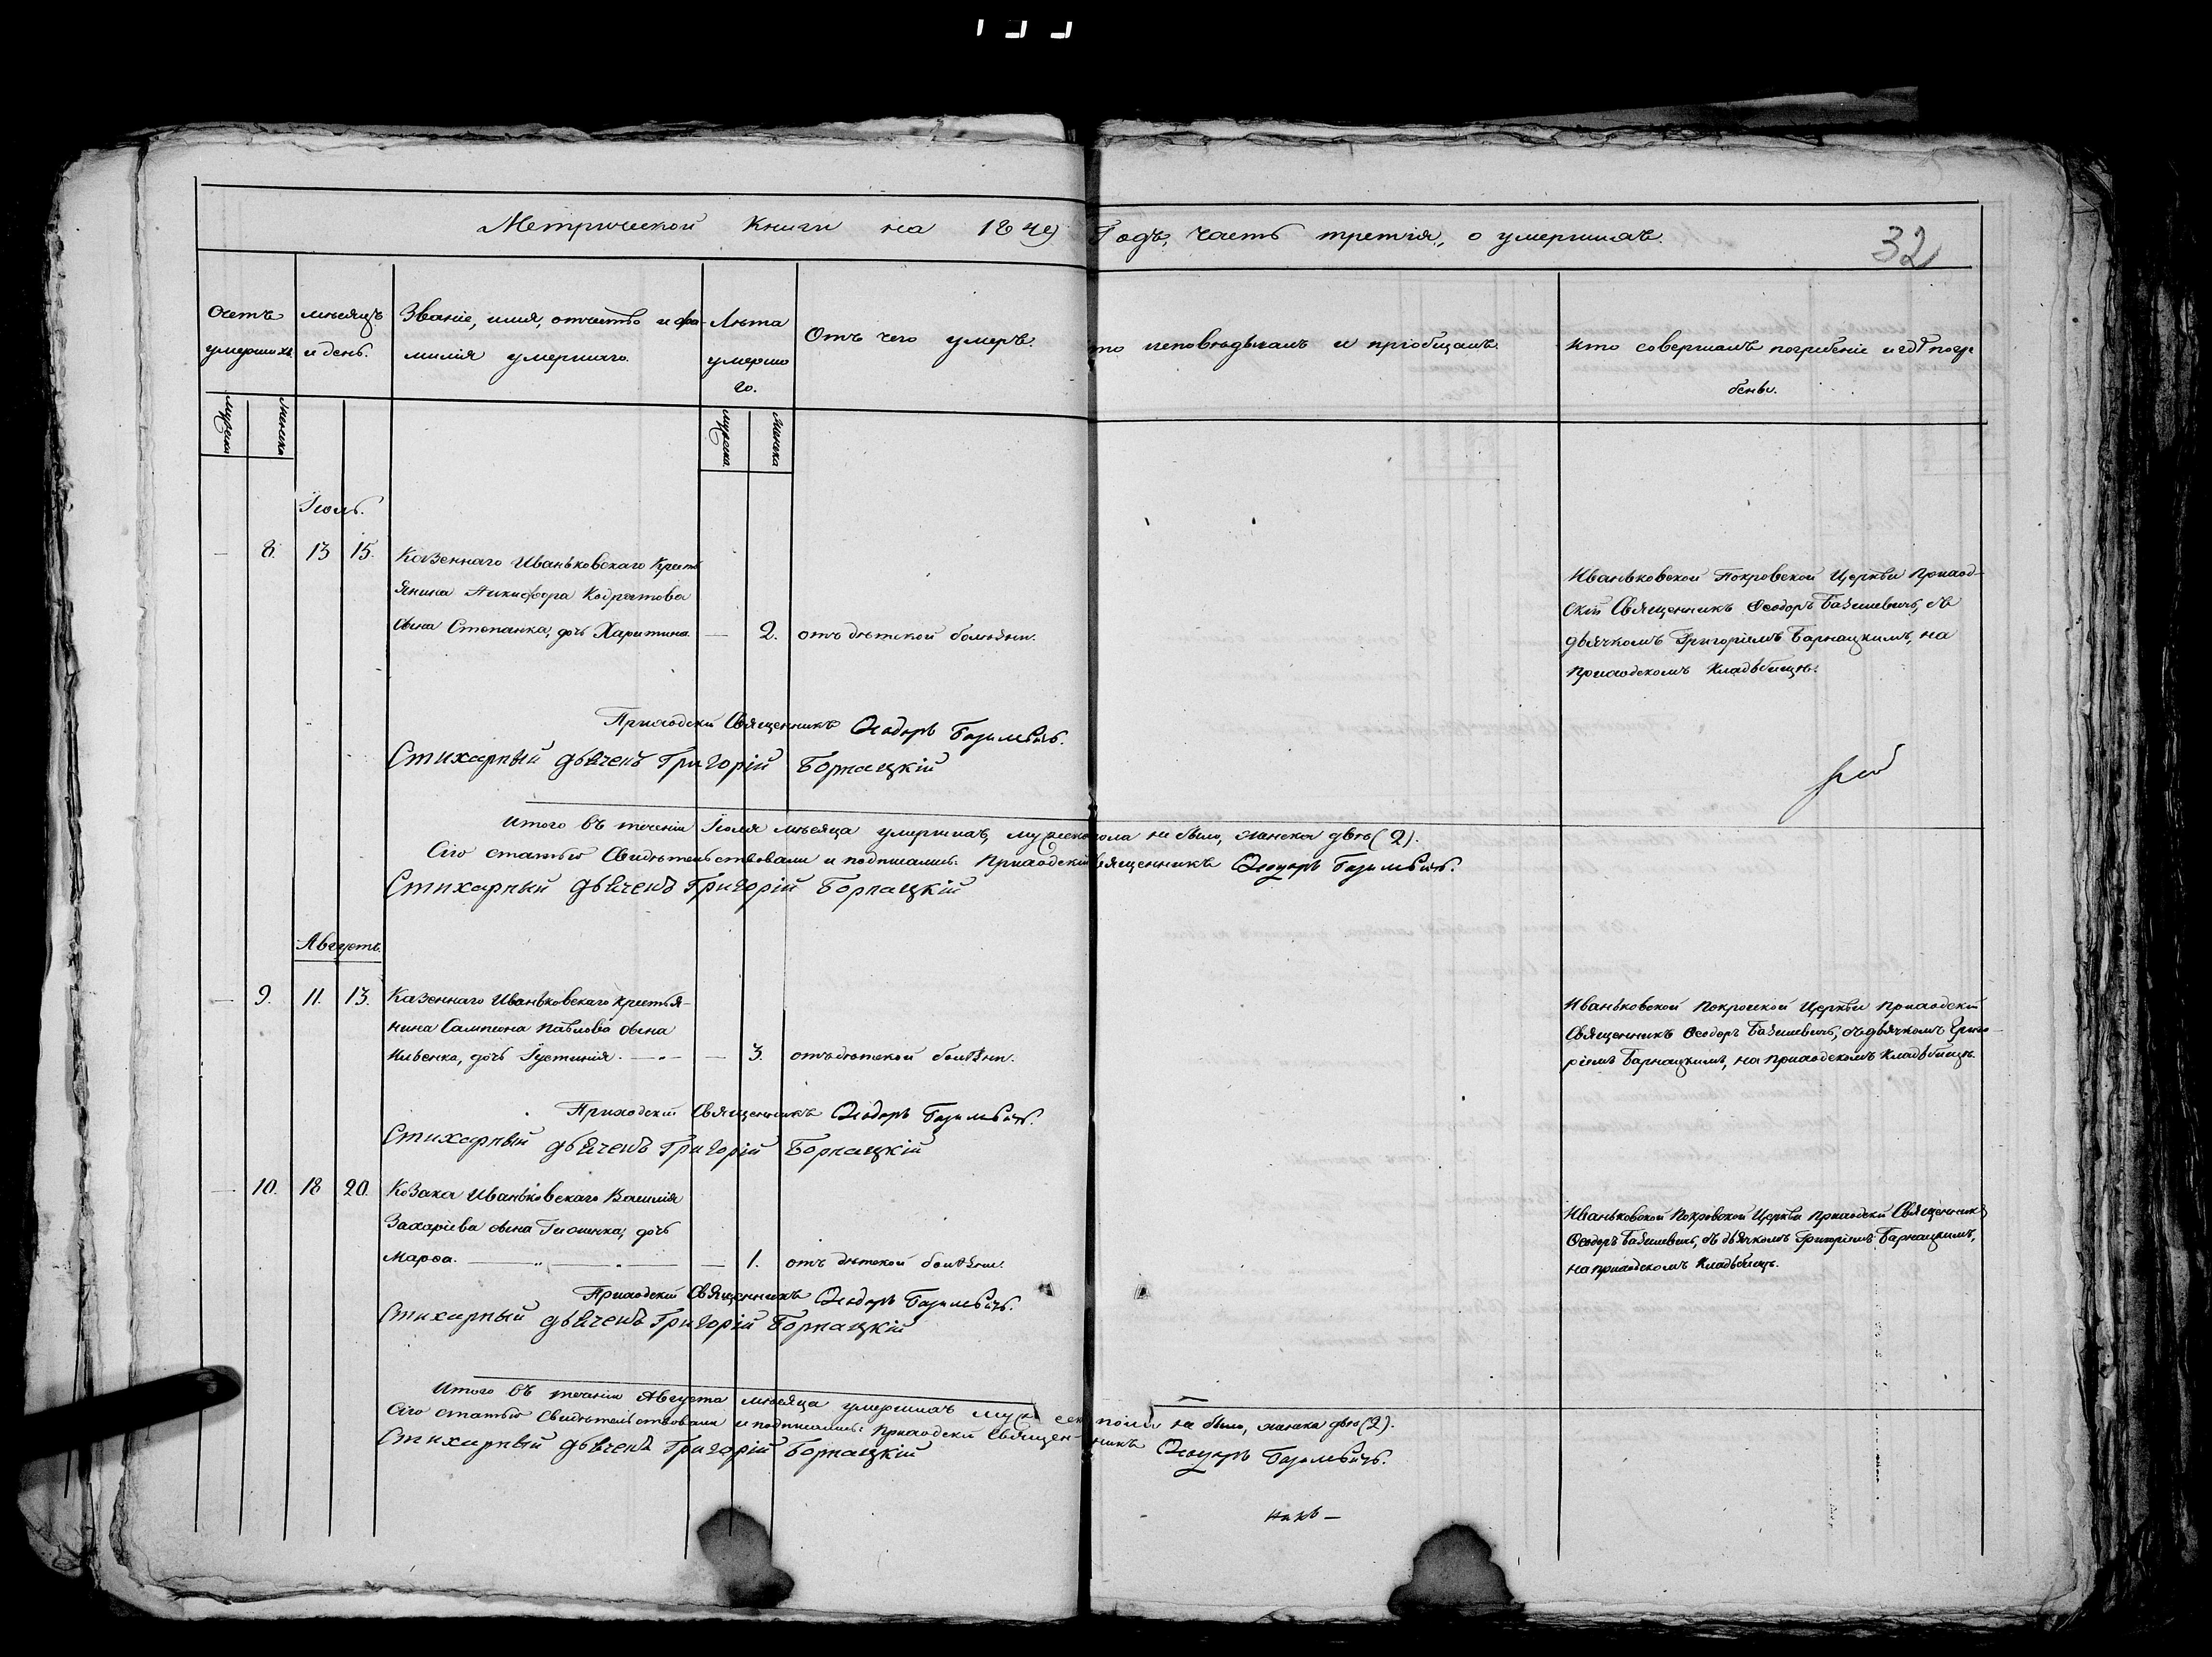 Метрической Книги на 1849 Годъ, часть третія, о умершихъ.
32
Счетъ умершихъ.
мѣсяцъ и день.
Званіе, имя, отчество и фа-
милія умершаго.
Лѣта
умерша
го.
Отъ чего умеръ.
то исповѣдывалъ и пріобщалъ.
Кто совершалъ погребеніе и гдѣ погре
бены.
мужска
женска
мужска
женска
Іюль.
— 8. 13 15. Казеннаго Иваньковскаго Крестъ
янина Никифора Кодратова
сына Степанка, дочь Харитина. — 2. отъ дѣтской болѣзни.
Иваньковской Покровской Церкви Приход-
скій Священникъ Ѳеодоръ Базилевичъ, съ
дьячкомъ Григоріемъ Барнацкимъ, на
приходскомъ Кладбищѣ.
Приходскій Священникъ Ѳеодоръ Базилевичъ.
Стихарный дьячекъ Григорій Борнацкій
Итого въ теченіи Іюля мѣсяца умершихъ, мужеска пола не было, женска двѣ (2).
Сію статью Свидѣтельствовали и подписались: Приходскій священникъ Ѳеодоръ Базилевичъ.
Стихарный дьячекъ Григорій Борнацкій
Августъ.
— 9. 11. 13. Казеннаго Иваньковскаго крестья-
нина Сампсона Павлова сына
Ильенка, дочь Густинія. — — 3. отъ дѣтской болѣзни.
Иваньковской Покровской Церкви Приходскій
Священникъ Ѳеодоръ Базилевичъ, съ дьячкомъ Григо-
ріемъ Барнацкимъ, на приходскомъ Кладбищѣ.
Приходскій Священникъ Ѳеодоръ Базилевичъ.
Стихарный дьячекъ Григорій Борнацкій
— 10. 18 20. Козака Иваньковскаго Василія
Захаріева сына дочь
Марѳа. — — 1. отъ дѣтской болѣзни.
Иваньковской Покровской Церкви Приходскій Священникъ
Ѳеодоръ Базилевичъ, съ дьячкомъ Григоріемъ Барнацкимъ,
на приходскомъ Кладбищѣ.
Приходскій Священникъ Ѳеодоръ Базилевичъ.
Стихарный дьячекъ Григорій Борнацкій
Итого въ теченіи Августа мѣсяца умершихъ мужеска пола не было, женска двѣ (2).
Сію статью Свидѣтельствовали и подписались: Приходскій Священникъ Ѳеодоръ Базилевичъ.
Стихарный дьячекъ Григорій Борнацкій